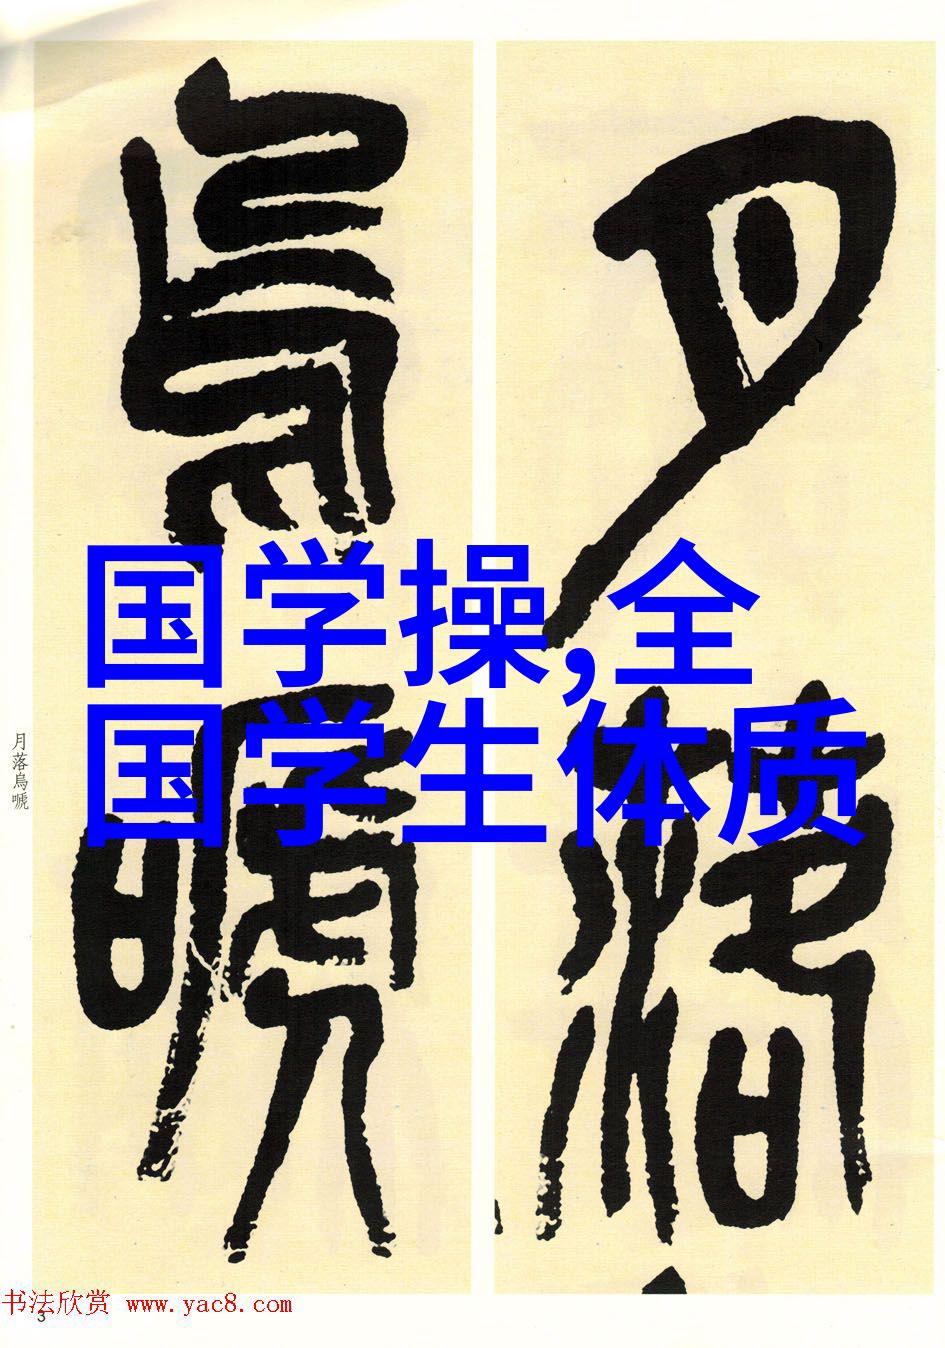 月落
烏嗁
国学操,全
国学生体质
月落烏嗁
书法欣赏 www.yac8.com
3